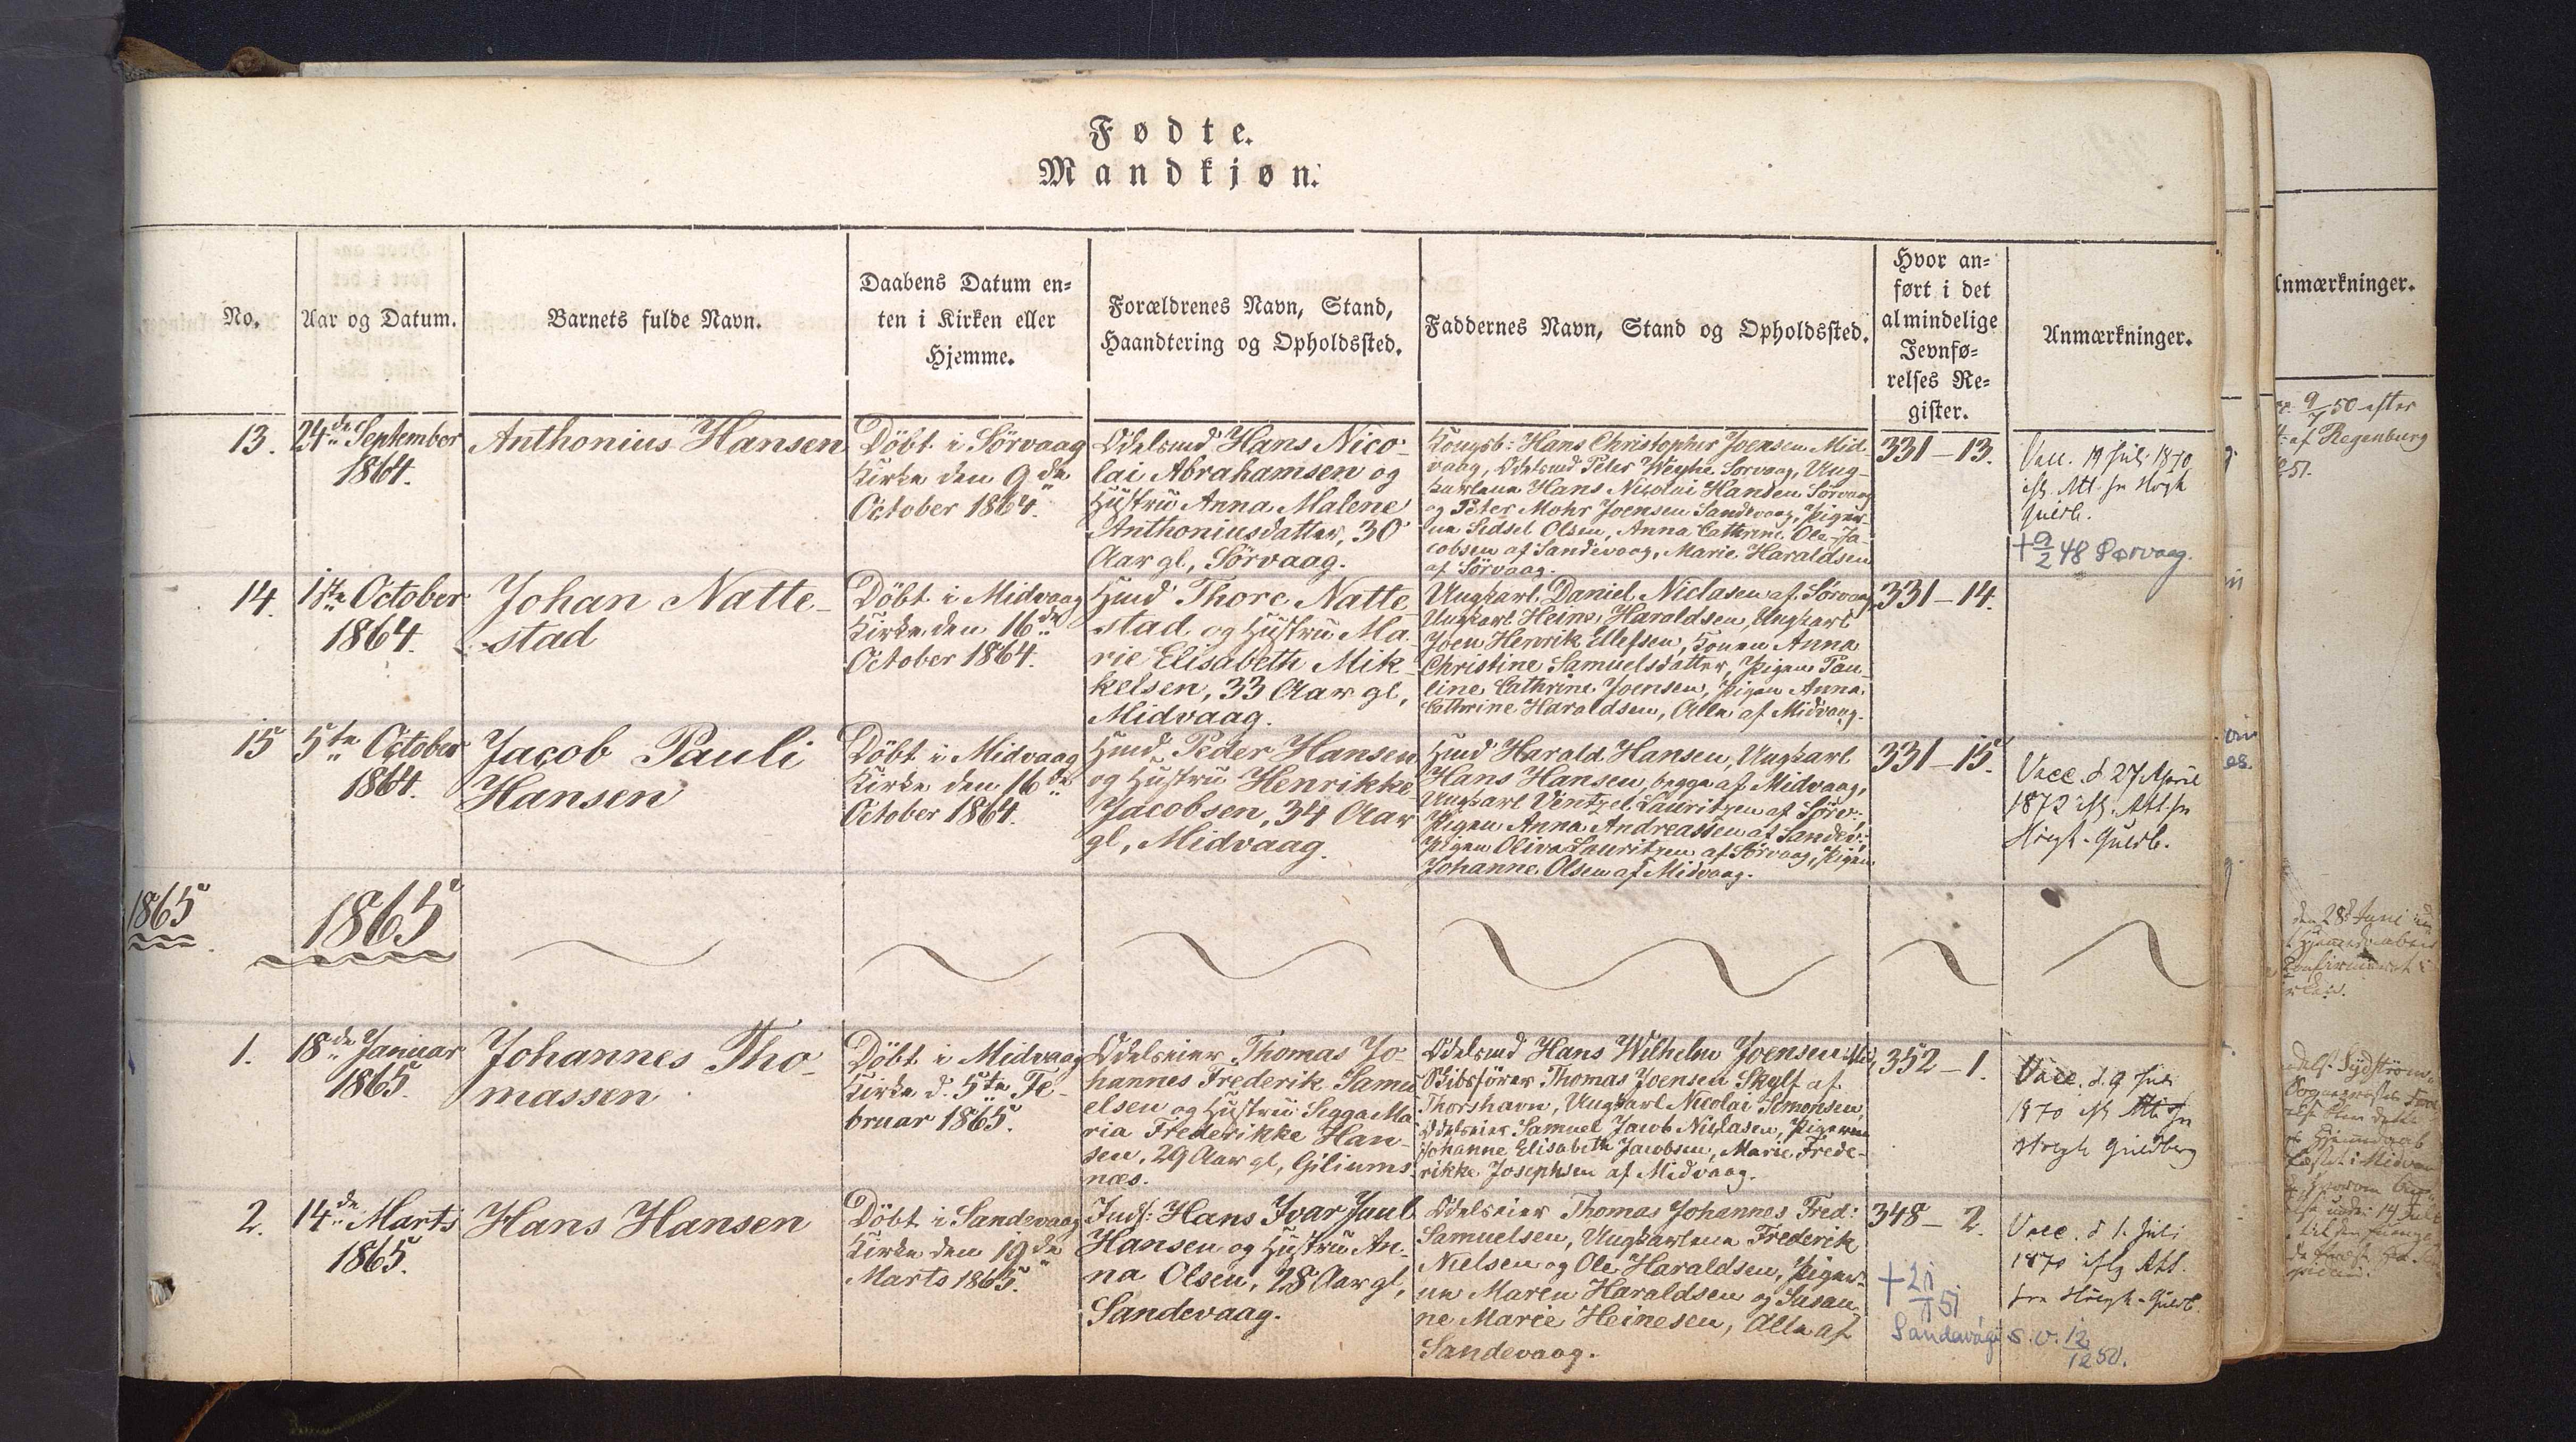 Fødte.
Mandkjøn.
No.
Aar og Datum.
Barnets fulde Navn.
Daabens Datum en=
ten i Kirken eller
Hjemme.
Forældrenes Navn, Stand,
Haandtering og Opholdssted.
Faddernes Navn, Stand og Opholdssted.
Hvor an=
ført i det
almindelige
Jevnfø=
relses Re=
gister.
Anmærkninger.
13.
24de September
1864.
Anthonius Hansen
Döbt i Sörvaag
Kirke den 9de
October 1864.
Odelsmd Hans Nico-
lai Abrahamsen og
Hustru Anna Malene
Anthoniusdatter, 30
Aar gl, Sörvaag.
Kongsb: Hans Christopher Joensen Mid-
vaag, Odelsmd Peter Weyhe Sörvaag, Ung-
karlene Hans Nicolai Hansen Sörvaag
og Peter Mohr Joensen Sandevaag, Piger-
ne Sidsel Olsen, Anna Cathrine Ole-Ja-
cobsen af Sandevaag, Marie Haraldsen
af Sörvaag.
331-13.
Vacc. 19 Juli 1870
Att. fra Høgh
Guldb.
+ 9/2 48 Sørvaag.
14.
1ste October
1864.
Johan Natte-
stad
Döbt i Midvaag
Kirke den 16de
October 1864.
Hmd Thore Natte-
stad og Hustru Ma-
rie Elisabeth Mik-
kelsen, 33 Aar gl,
Midvaag.
Ungkarl Daniel Niclasen af Sörvaag
Ungkarl Heine Haraldsen, Ungkarl
Joen Henrik Ellefsen, Konen Anna
Christine Samuelsdatter, Pigen Pau-
line Cathrine Joensen, Pigen Anna
Cathrine Haraldsen, Alle af Midvaag.
331-14.
15
5te October
1864.
Jacob Pauli
Hansen
Döbt i Midvaag
Kirke den 16de
October 1864.
Hmd Peder Hansen
og Hustru Henrikke
Jacobsen, 34 Aar
gl, Midvaag.
Hmd Harald Hansen, Ungkarl
Hans Hansen, begge af Midvaag,
Ungkarl Ventzel Lauritzen af Sörv:,
Pigen Anna Andreassen af Sandev:
Pigen Oliva Lauritzen af Sörvaag, Pigen
Johanne Olsen af Midvaag.
331-15.
Vacc. d. 27 April
1872 Att. fra
Høegh-Guldb.
1865
1865
1.
18de Januar
1865.
Johannes Tho-
massen
Döbt i Midvaag
Kirke d. 5te Fe-
bruar 1865.
Odelseier Thomas Jo-
hannes Frederik Samu-
elsen og Hustru Sigga Ma-
ria Frederikke Han-
sen, 29 Aar gl, Giliums-
næs.
Odelsmd Hans Wilhelm Joensen
Skibsförer Thomas Joensen Skylf af
Thorshavn, Ungkarl Nicolai Simonsen,
Odelseier Samuel Jacob Niclasen, Pigerne
Johanne Elisabeth Jacobsen, Marie Frede-
rikke Josephsen af Midvaag.
352-1.
Vacc. d. 9 Juli
1870 Att. fra
Høegh Guldberg
2.
14de Marts
1865.
Hans Hansen
Döbt i Sandevaag
Kirke den 19de
Marts 1865.
Inds: Hans Ivar Juul
Hansen og Hustru An-
na Olsen, 28 Aar gl,
Sandevaag.
Odelseier Thomas Johannes Fred:
Samuelsen, Ungkarlene Frederik
Nielsen og Ole Haraldsen, Piger-
ne Maren Haraldsen og Susan-
ne Marie Heinesen, Alle af
Sandevaag.
348-2.
Vacc. d 1. Juli
1870 Att.
fra Høegh-Guldb.
+ 21/1 51
Sandavági s.v. 12/12 50.
Anmærkninger.
9/7 50 efter
af Regenburg